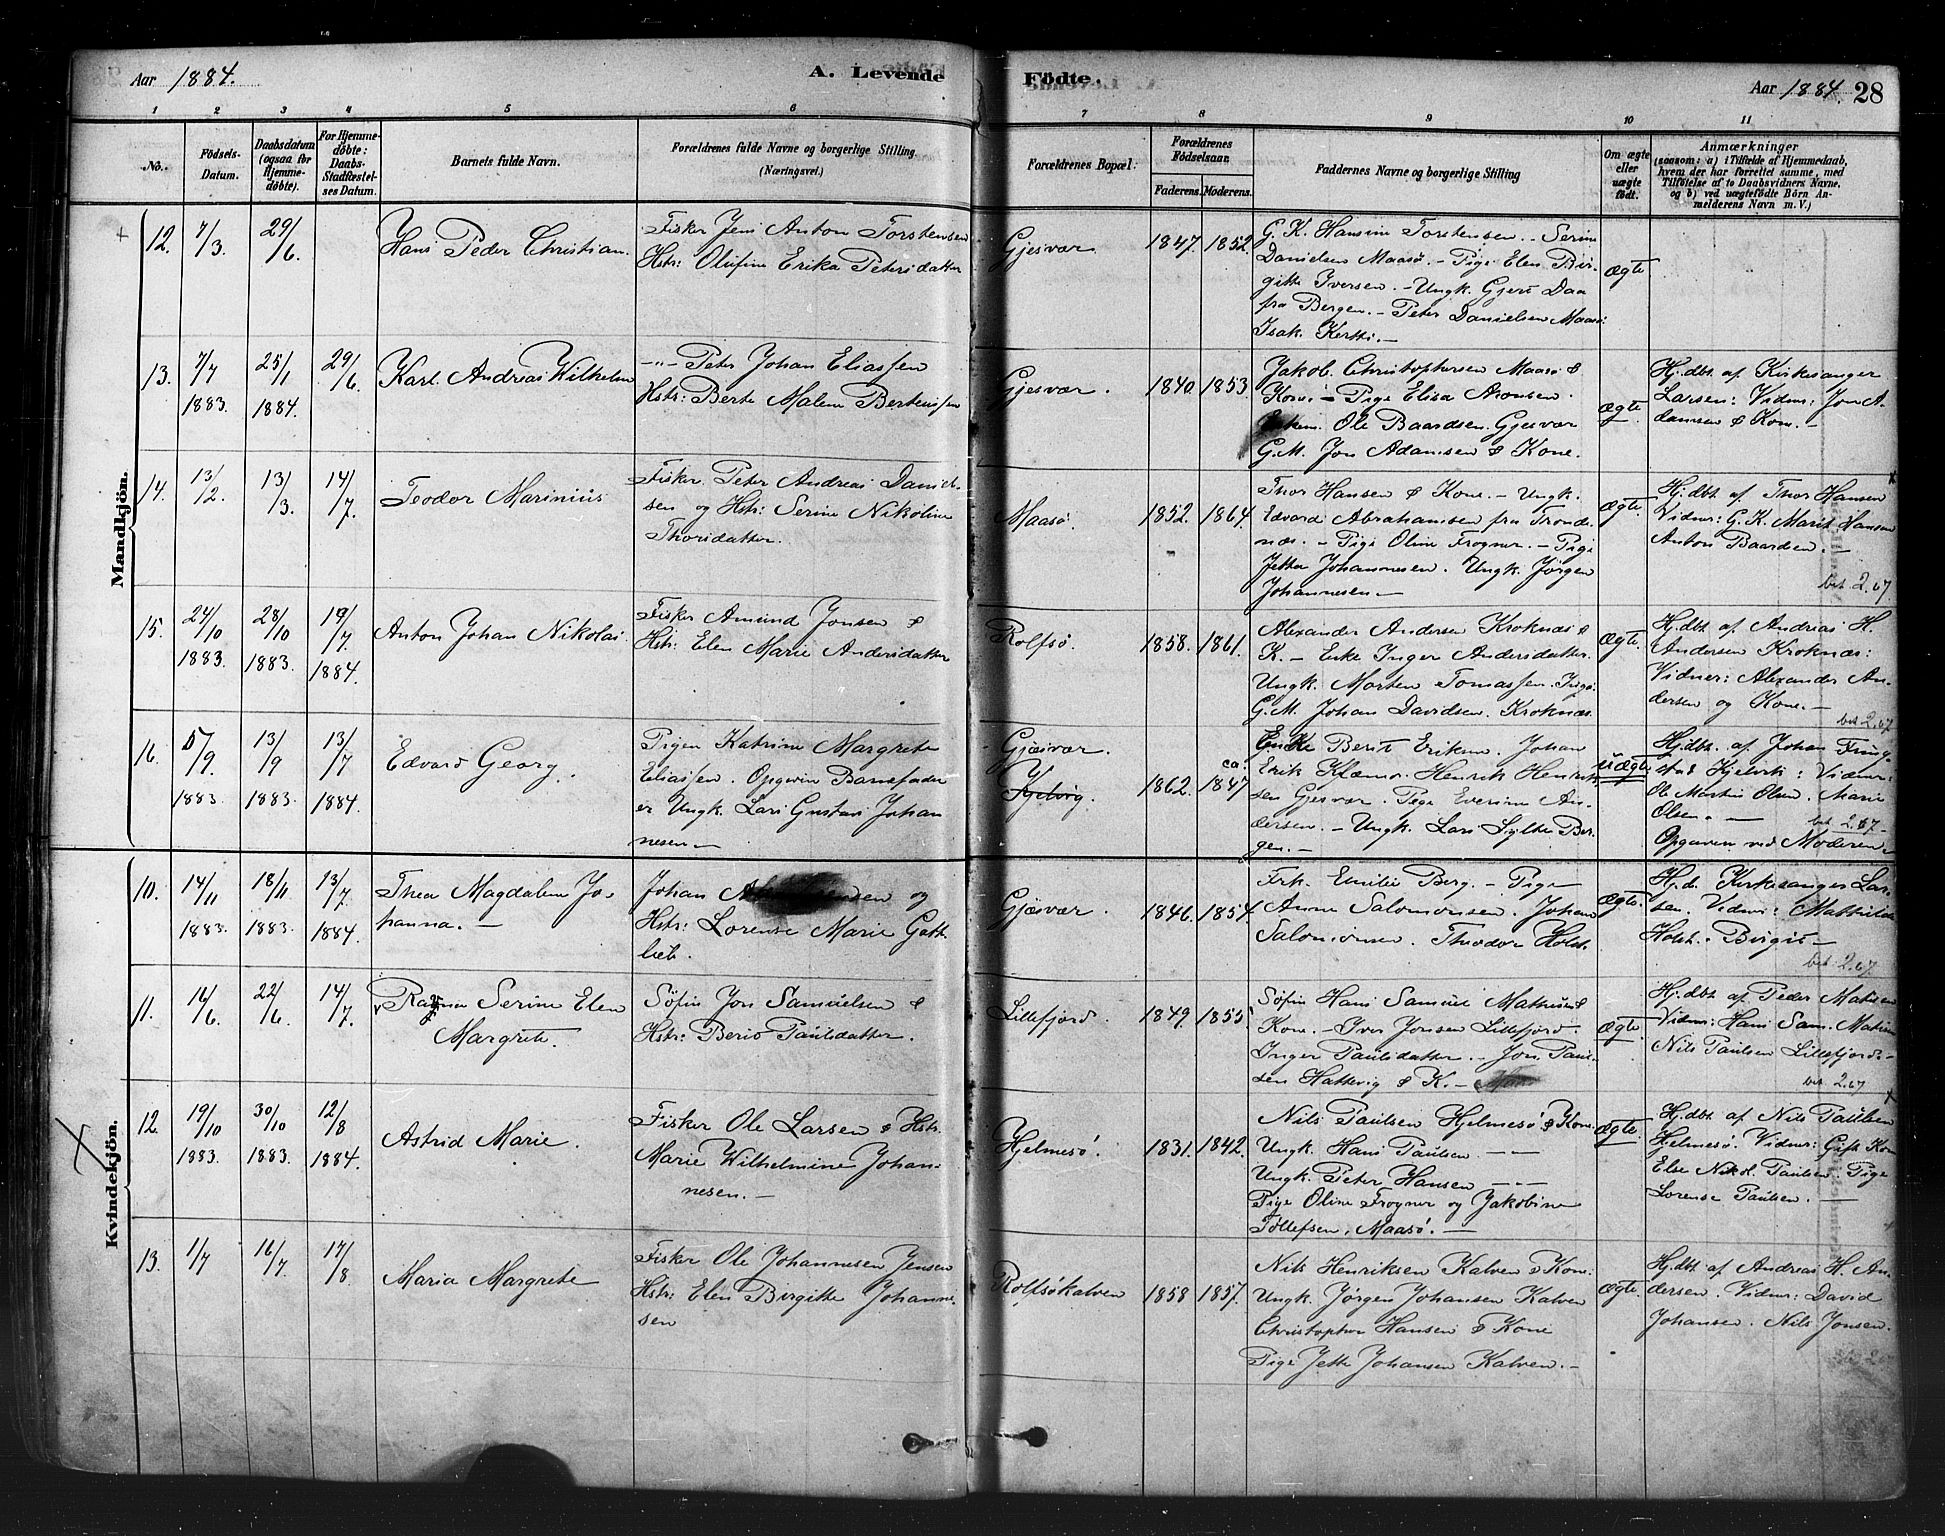 Aar 1884. A. Levende
Födte. Aar 1884. 28
1 2 3 4 5 6 7 8 9 10 11
No. Födsels-Datum. Daabsdatum (ogsaa for Hjemmedöbte). For Hjemmedöbte: Daabs-Stadfæstelses Datum. Barnets fulde Navn. Forældrenes fulde Navne og borgerlige Stilling. (Næringsvei.) Forældrenes Bopæl: Forældrenes Födselsaar. Faderens. Moderens. Faddernes Navne og borgerlige Stilling Om ægte eller uægte födt. Anmærkninger (saasom: a) i Tilfælde af Hjemmedaab, hvem der har forrettet samme, med Tilföielse af to Daabsvidners Navne, og b) ved uægtefödte Börn Anmelderens Navn m. V.)
Mandkjön.
12. 7/3 29/6 Hans Peder Christian.
Fisker Jens Anton Torstensen
Hstr: Olufine Erika Petersdatter
Gjesvær. 1847. 1852.
G. K. Hansine Torstensen. - Serine
Danielsen Maasö. - Pige Elen Bir-
gitte Iversen. - Ungk. Gjert Daa
fra Bergen. - Peter Danielsen Maasö
Isak Kertti. -
Ægte
13. 7/7 1883. 25/1 1884. 29/6 Karl Andreas Wilhelm
-"- Peter Johan Eliassen
Hstr: Berte Malene Berthensen
Gjesvær. 1840. 1853.
Jakob Christophersen Maasö &
Kone - Pige Elisa Aronsen.
Ole Baardsen. Gjesvær
G.M. Jon Adamsen & Kone.
Ægte
Hj.dbt af Kirkesanger
Larsen: Vidner: Jon A-
damsen & Kone. -
14. 13/2 13/3 14/7 Teodor Marinius
Fisker Peter Andreas Daniel-
sen og Hstr: Serine Nikoline
Thorsdatter.
Maasö. 1852. 1864.
Thor Hansen & Kone. - Ungk.
Edvard Abrahamsen fra Trond-
næs. - Pige Oline Frogner. - Pige
Jette Johannesen. Ungk. Jörgen
Johannesen -
Ægte
Hj.dbt af Thor Hansen
Vidner: G. K. Marit Hansen
Anton Baardsen. -
bet 2.67
15. 24/10 1883. 28/10 1883. 19/7 1884. Anton Johan Nikolai.
Fisker Amund Jonsen &
Hstr: Elen Marie Andersdatter
Rolfsö. 1858. 1861.
Alexander Andersen Kroknæs &
K. - Enke Inger Andersdatter.
Ungk. Morten Tomassen. Ingö.
G.M. Johan Davidsen. Kroknæs.
Ægte
Hj.dbt af Andreas H.
Andersen Kroknæs:
Vidner: Alexander An-
dersen og Kone. -
bet 2.67
16. 5/9 1883. 13/9 1883. 13/7 1884. Edvard Georg.
Pigen Katrine Margrete
Eliassen. Opgiven Barnefader
er Ungk. Lars Gustav Johan
nesen -
Gjesvær.
Kjelvig. 1862. ca. 1847
Enke Berit Eriksen. Johan
Erik Kfæmo. Henrik Henrik-
sen Gjesvær. Pige Everine An-
dersen. - Ungk. Lars Lylke Ber-
gen. -
uægte
Hj.dbt. af Johan Tring-
stad Kjelvik: Vidner:
Ole Martin Olsen. Marie
Olsen. - bet 2.67
Opgaven ved Moderen
Kvindekjön.
10. 14/11 1883. 18/11 1883. 13/7 1884. Thea Magdalene Jo-
hanna. -
Johan og
Hstr: Lorense Marie Gott-
lieb.
Gjösvær. 1846. 1854.
Frk. Emilie Berg. - Pige
Anne Salomonsen. Johan
Salomonsen. Theodor Holst.
Ægte.
Hj.d. Kirkesanger Lar-
sen. Vidner: Mathilde
Holst. Birgit -
bet 2.67
11. 16/6 22/6 14/7 Ragna Serine Elen
Margrete.
Söfin Jon Samuelsen &
Hstr: Berit Paulsdatter.
Lillefjord. 1849. 1855.
Söfin Hans Samuel Mathisen &
Kone. - Iver Jonsen Lillefjord
Inger Paulsdatter. - Jon Paul-
sen Hattevig & K. -
Ægte
Hj.dbt af Peder Matisen
Vidner: Hans Sam. Matisen
Nils Paulsen Lillefjord. -
bet 2.67
12. 19/10 1883. 30/10 1883. 12/8 1884. Astrid Marie.
Fisker Ole Larsen & Hstr.
Marie Wilhelmine Johan-
nesen. -
Hjelmesö. 1831. 1842.
Nils Paulsen Hjelmesö & Kone
Ungk. Hans Paulsen -"-
Ungk. Peter Hansen -"-
Pige Oline Frogner og Jakobine
Tollefsen, Maasö. -
Ægte
Hj.dbt af Nils Paulsen
Helmesö. Vidner: Gift Kone
Else Nikol. Paulsen Pige
Lorense Paulsen. -
13. 1/7 16/7 17/8 Maria Margrete
Fisker Ole Johannesen Jensen
Hstr: Elen Birgitte Johanne-
sen
Rolfsökalven 1858 1857.
Nils Henriksen Kalven & Kone
Ungk. Jörgen Johansen Kalven
Christopher Hansen & Kone
Pige Jette Johansen Kalven. -
Ægte.
Hj.dbt af Andreas H. An-
dersen. Vidner: David
Johansen. Nils Jonsen.